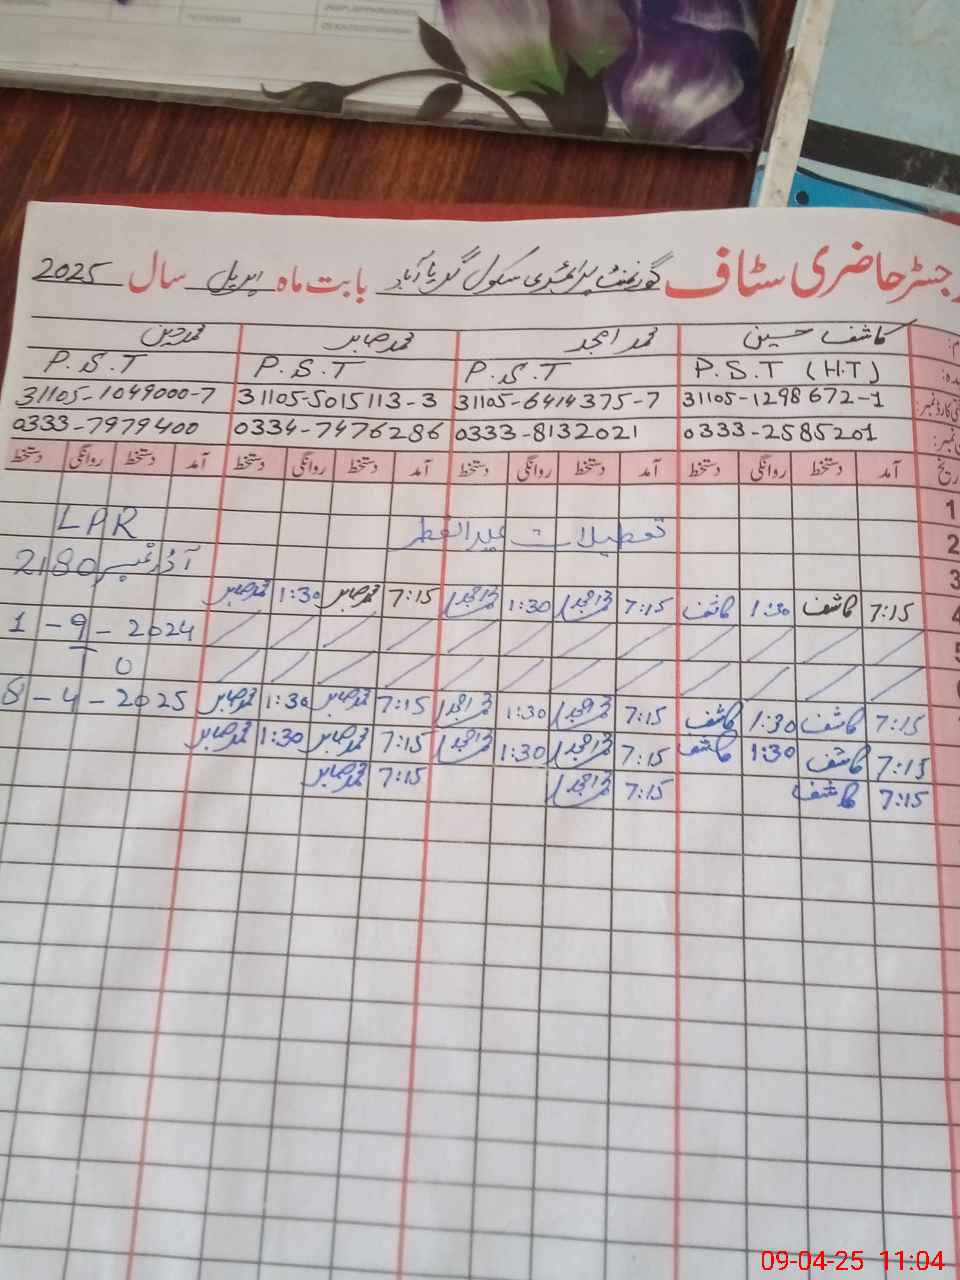 رجسٹر حاضری سٹاف گورنمنٹ پرائمری سکول بابت ماہ اپریل سال 2025
کاشف حسین محمد امجد محمد صابر
P.S.T (H.T) P.S.T P.S.T P.S.T
31105-1298672-1 31105-6414375-7 31105-5015113-3 31105-1049000-7
0333-2585201 0333-8132021 0334-7476286 0333-7979400
تاریخ آمد دستخط روانگی دستخط آمد دستخط روانگی دستخط آمد دستخط روانگی دستخط آمد دستخط روانگی دستخط
1
2 تعطیلات عیدالفطر LPR
3 آڈر نمبر 2180
4 7:15 کاشف 1:30 کاشف 7:15 محمد امجد 1:30 محمد امجد 7:15 محمد صابر 1:30 محمد صابر
5 1-9-2024
to
7:15 کاشف 1:30 کاشف 7:15 محمد امجد 1:30 محمد امجد 7:15 محمد صابر 1:30 محمد صابر 8-4-2025
7:15 کاشف 1:30 کاشف 7:15 محمد امجد 1:30 محمد امجد 7:15 محمد صابر 1:30 محمد صابر
7:15 کاشف 7:15 محمد امجد 7:15 محمد صابر
09-04-25 11:04